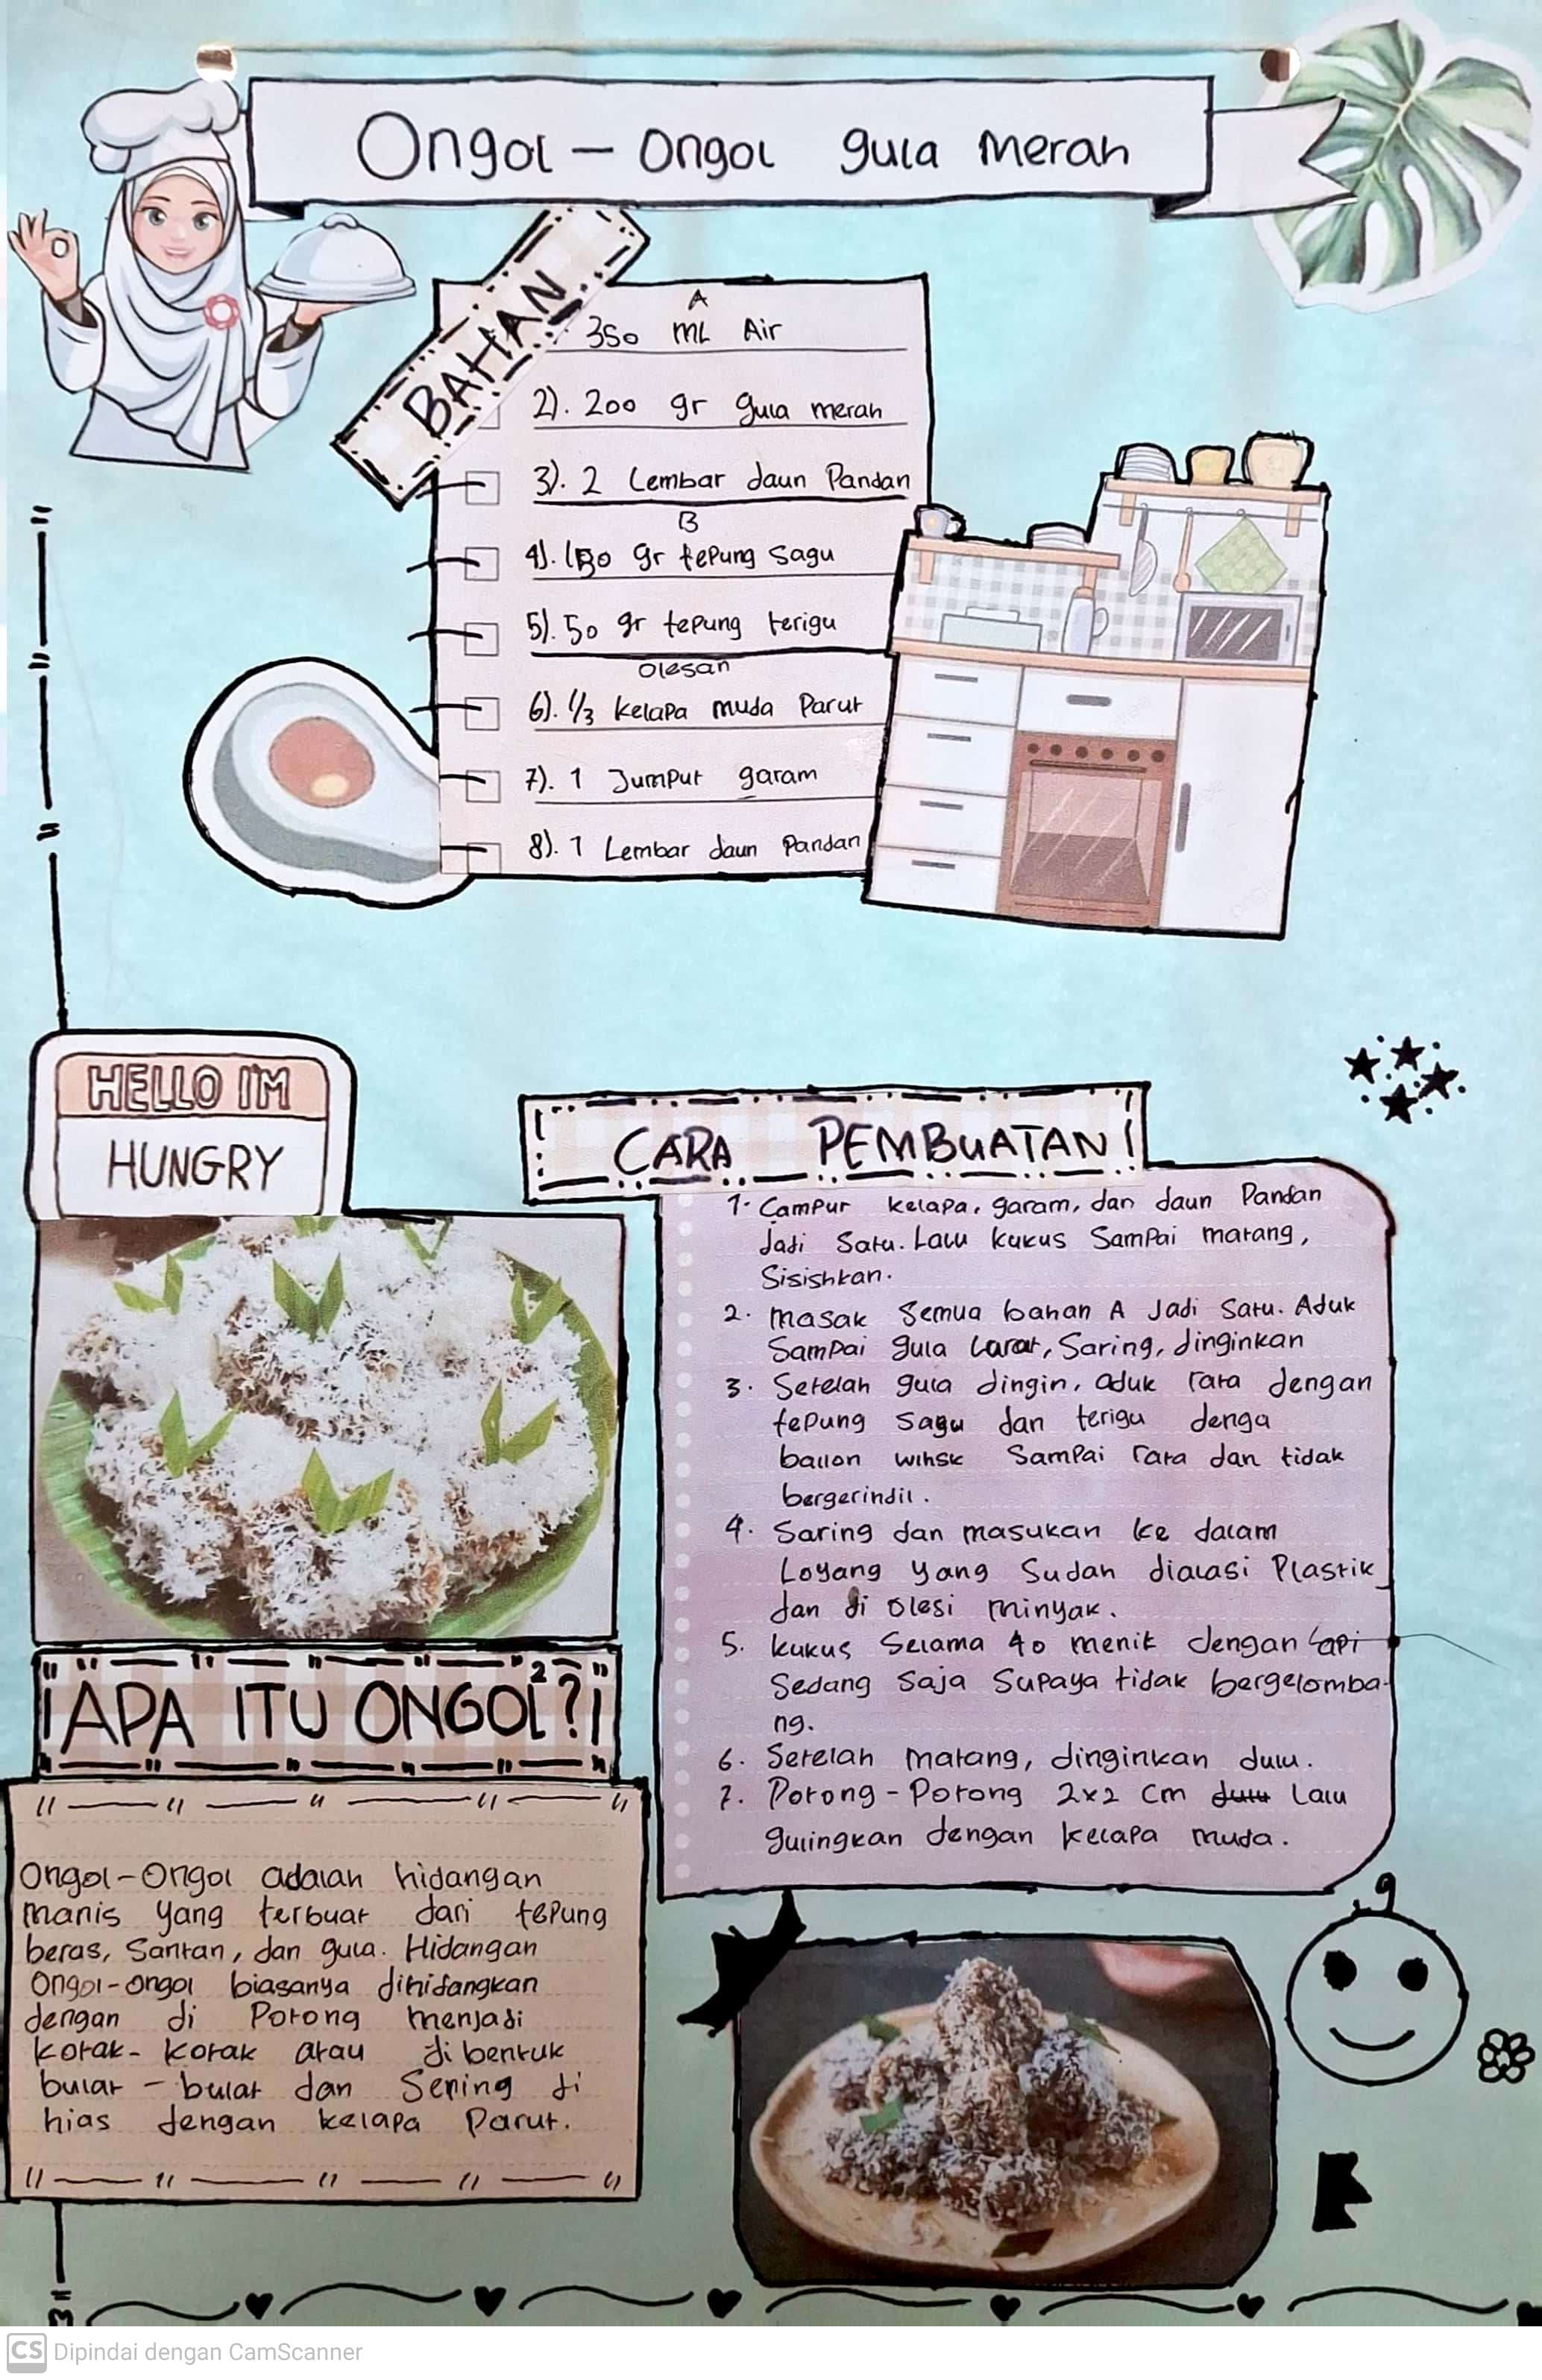 Ongol - Ongol gula merah
BAHAN
A
350 ML Air
2). 200 gr gula merah
3). 2 Lembar daun Pandan
B
4). 150 gr tepung Sagu
5). 50 gr tepung terigu
olesan
6). 1/3 kelapa muda Parut
7). 1 Jumput garam
8). 1 Lembar daun Pandan
HELLO I'M
HUNGRY
CARA PEMBUATAN!
1. Campur kelapa, garam, dan daun Pandan
Jadi Satu. Lalu kukus Sampai matang,
Sisishkan.
2. masak Semua bahan A Jadi Satu. Aduk
Sampai gula Larat, Saring, dinginkan
3. Setelah gula dingin, aduk rata dengan
tepung Sagu dan terigu denga
ballon wihsk Sampai rata dan tidak
bergerindil.
4. Saring dan masukan ke dalam
Loyang yang Sudah dialasi Plastik
dan di olesi minyak.
5. kukus Selama 40 menit dengan api
Sedang Saja Supaya tidak bergelomba-
ng.
6. Setelah matang, dinginkan dulu.
7. Potong-Potong 2x2 Cm dulu Lalu
gulingkan dengan kelapa muda.
APA ITU ONGOL²?
Ongol-Ongol adalah hidangan
manis yang terbuat dari tepung
beras, Santan, dan gula. Hidangan
Ongol-ongol biasanya dihidangkan
dengan di Potong menjadi
kotak-kotak atau di bentuk
bulat-bulat dan Sering di
hias dengan kelapa Parut.
CS Dipindai dengan CamScanner